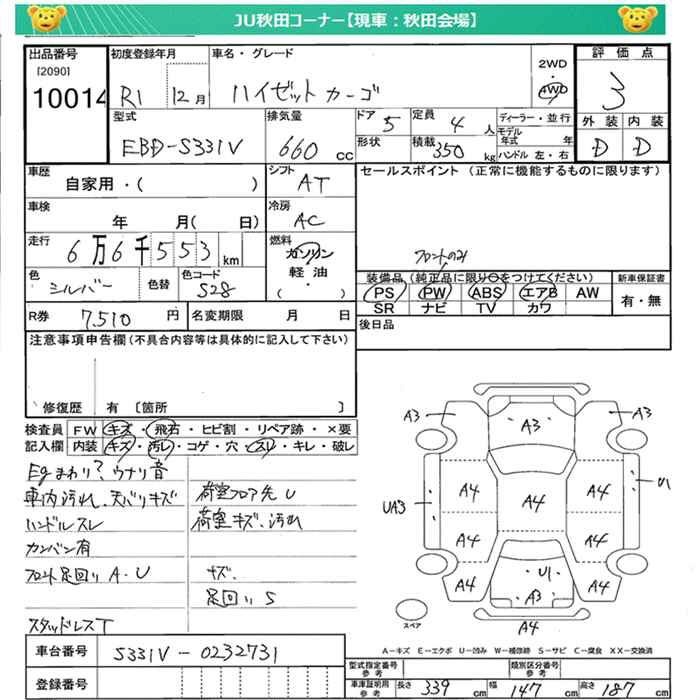 JU秋田コーナー【現車：秋田会場】
出品番号
[2090]
10014
初度登録年月
R1 12月
車名・グレード
ハイゼットカーゴ
2WD
4WD
評価点
3
外装 内装
D D
型式
EBD-S331V
排気量
660 cc
ドア
5
定員
4 人
形状
積載
350 kg
ディーラー・並行
モデル年式 年
ハンドル 左・右
車歴
自家用・( )
シフト
AT
セールスポイント（正常に機能するものに限ります）
車検
年 月( 日)
冷房
AC
走行
6万6千553 km
燃料
ガソリン
軽油
・( )
フロントのみ
装備品（純正品に限り○をつけてください）
PS PW ABS エアB AW
SR ナビ TV カワ
新車保証書
有・無
色
シルバー
色替
色コード
S28
R券 7,510 円
名変期限 月 日
後日品
注意事項申告欄（不具合内容等は具体的に記入して下さい）
修復歴 有 〔箇所 〕
検査員 FW キズ・飛石・ヒビ割・リペア跡・×要
記入欄 内装 キズ・汚レ・コゲ・穴・スレ・キレ・破レ
Egまわり?ウナリ音
車内汚れ、天バリキズ
ハンドルスレ
カンバン有
フロント足回りA・U
スタッドレスT
荷室フロア先U
荷室キズ、汚れ
キズ、
足回りS
A3 A3
A3
UA3 A4 A4 A4 U1
A4 A4
A4 U1 A4
A3
A4
スペア
A－キズ E－エクボ U－凹み W－補修跡 S－サビ C－腐食 XX－交換済
車台番号 S331V-0232731
登録番号
型式指定番号
参考
類別区分番号
参考
車庫証明用
参考
長さ 339 cm 幅 147 cm 高さ 187 cm